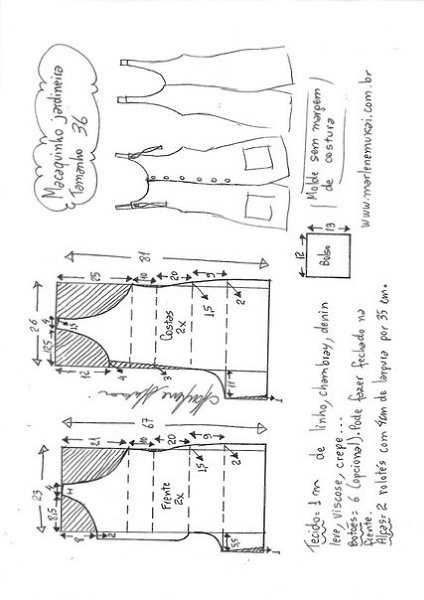 Macaquinho jardineira
Tamanho 36
Molde sem margem
de costura
www.marlenemukai.com.br
81
25
10
20
9
26
4
1,5
12,5
12
4
3
1,5
2
11
1
Costas
2x
Marlene Mukai
13
12
Bolso
67
21
10
20
9
23
4
H
8,5
8
2
1,5
2
5,5
1
Frente
2x
Tecido = 1 m de linho, chambray, denin
leve, viscose, crepe...
Botões = 6 (opcional). Pode fazer fechado na
frente.
Alças = 2 rolotês com 4cm de largura por 35 cm.